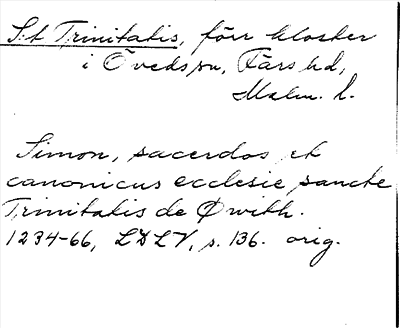 S:t Trinitatis, förr kloster
i Övedskn, Färs hd,
Malm. l.
Simon, sacerdos et
canonicus ecclesie sancte
Trinitatis de Øwith.
1234-66, LDLV, s. 136. orig.